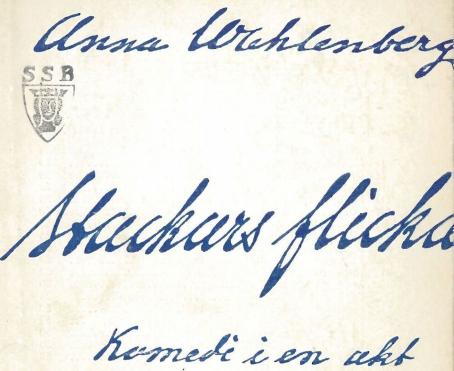 Anna Wahlenberg
SSB
Stackars flicka
Komedi i en akt